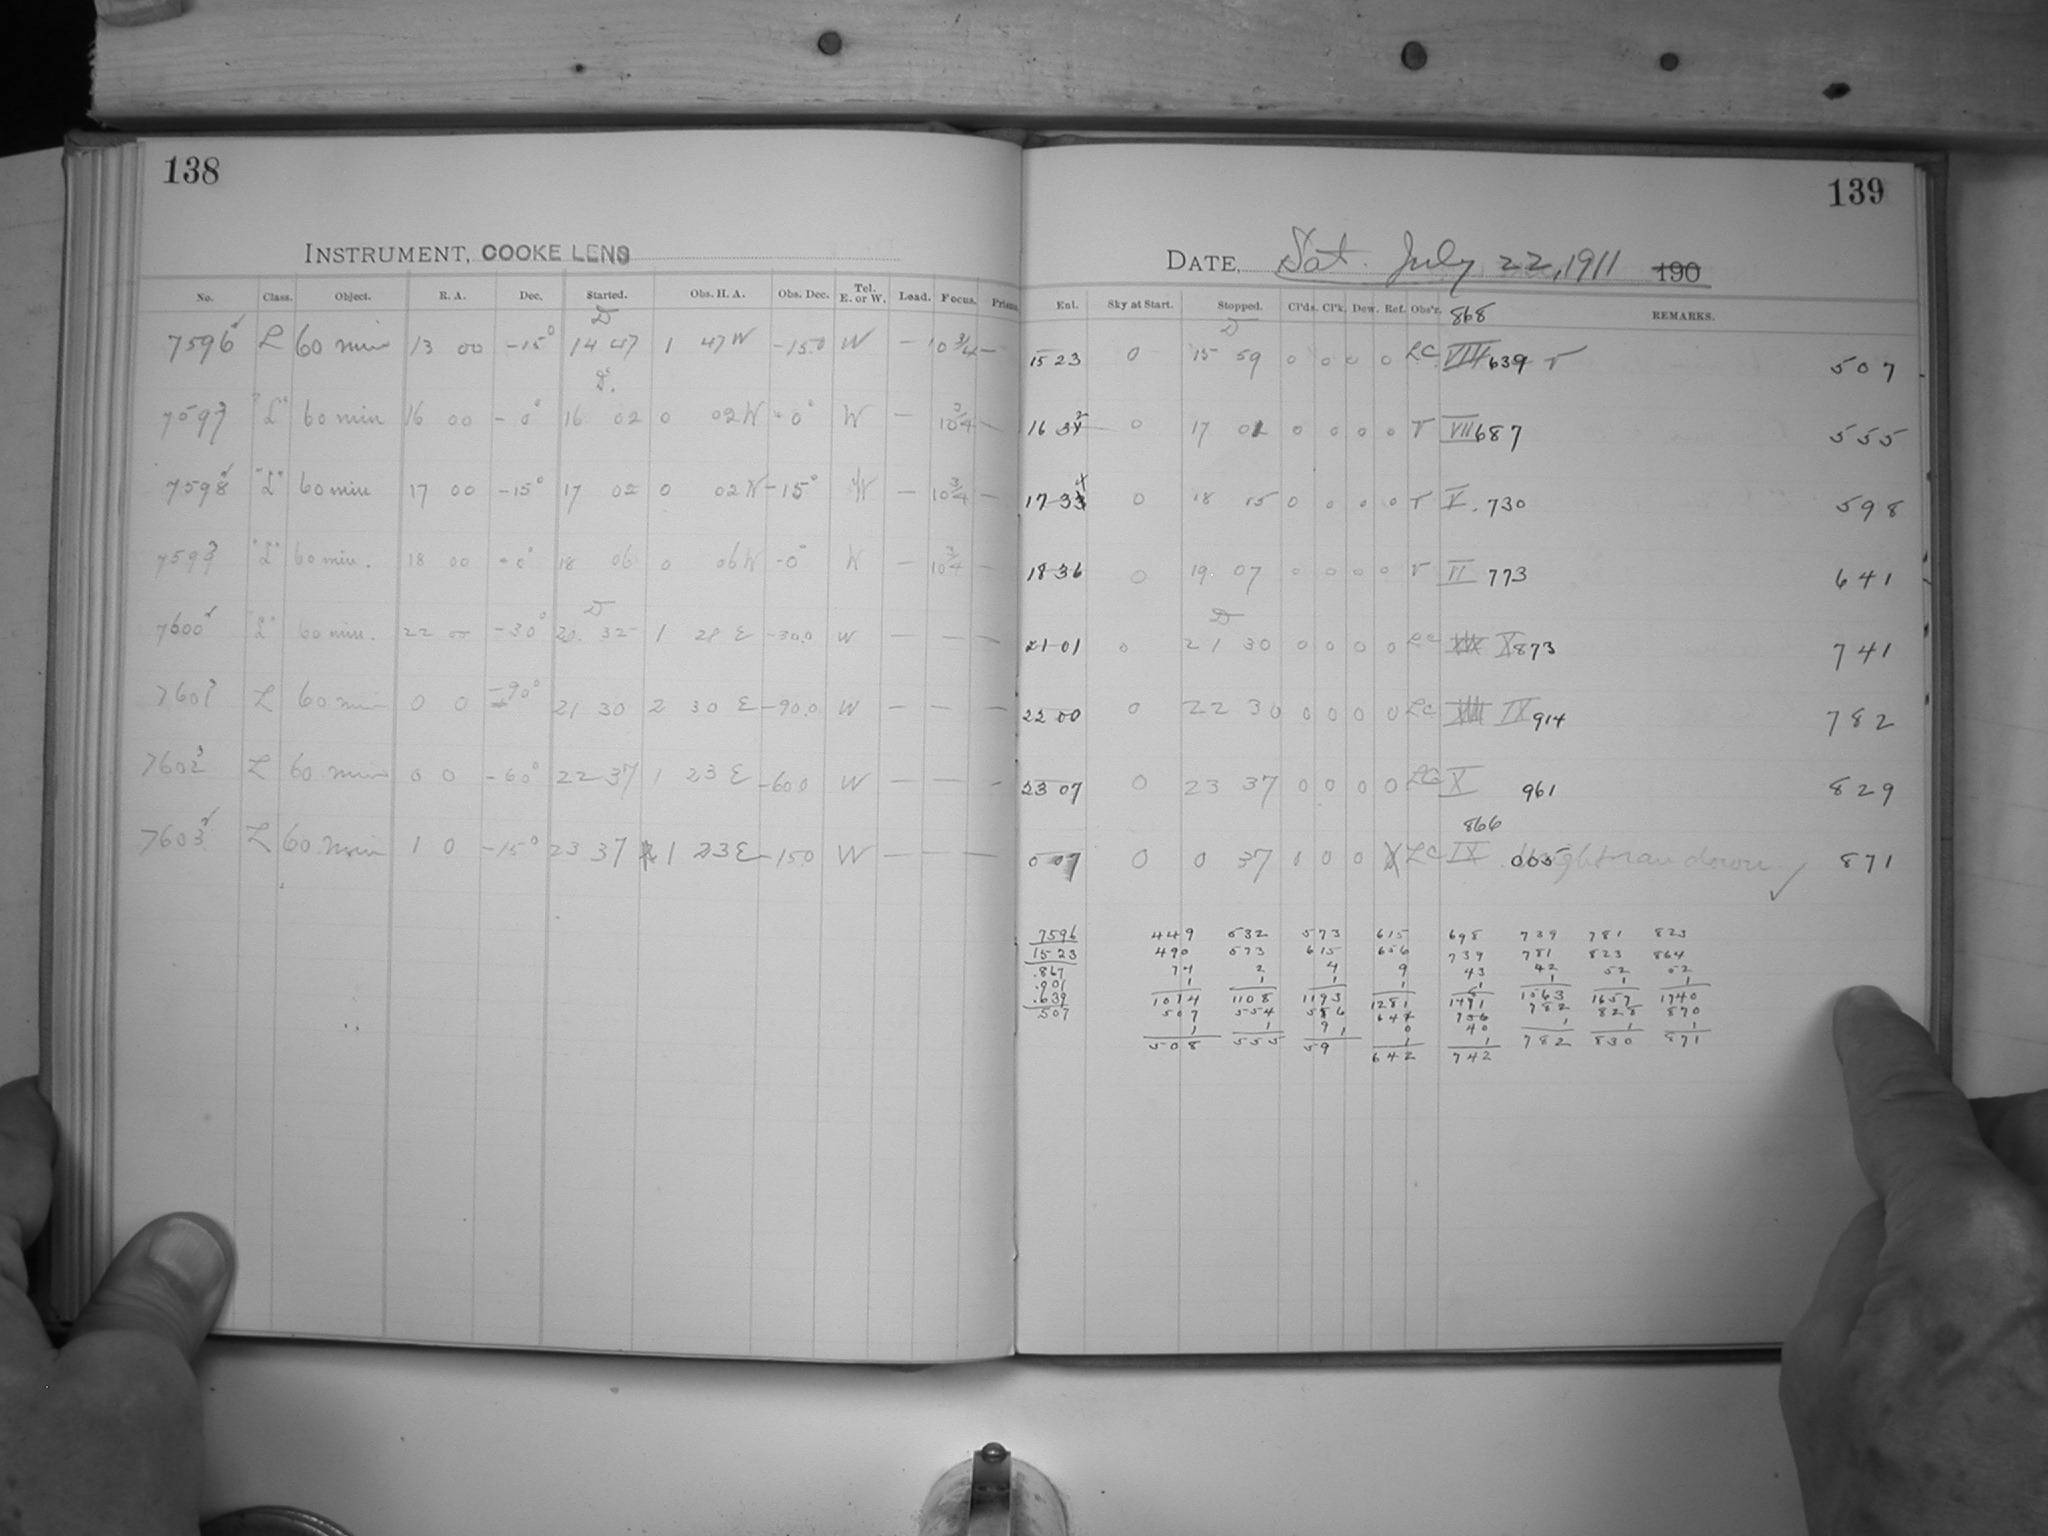 138
INSTRUMENT, COOKE LENS
No. Class. Object. R. A. Dec. Started. Obs. H. A. Obs. Dec. Tel. E. or W. Load. Focus. Prisms.
7596 L 60 min 13 00 -15° 14 47 1 47 W -15.0 W — 10 3/4 —
7597 "L" 60 min 16 00 - 0° 16 02 0 02 W - 0° W — 10 3/4 —
7598 "L" 60 min 17 00 -15° 17 02 0 02 W -15° W — 10 3/4 —
7599 "L" 60 min. 18 00 - 0° 18 06 0 06 W -0° W — 10 3/4 —
7600 "L" 60 min. 22 00 -30° 20 32 1 28 E -30.0 W — — —
7601 L 60 min 0 0 -90° 21 30 2 30 E -90.0 W — — —
7602 L 60 min 0 0 -60° 22 37 1 23 E -60.0 W — — —
7603 L 60 min 1 0 -15° 23 37 1 23 E -15.0 W — — —
139
DATE, Sat. July 22, 1911 190
Enl. Sky at Start. Stopped. Cl'ds. Cl'k. Dew. Ref. Obs'r. 868 REMARKS.
15 23 0 15 59 0 0 0 0 LC VIII 639 T 507
16 0 17 0 0 0 0 T VII 687 555
17 0 18 05 0 0 0 0 T V. 730 598
18 36 0 19 07 0 0 0 0 T VI 773 641
21 01 0 21 30 0 0 0 0 LC X 873 741
22 00 0 22 30 0 0 0 0 LC IX 914 782
23 07 0 23 37 0 0 0 0 LC X 961 829
866
0 07 0 0 37 0 0 0 LC IX 005 ran down ✓ 871
7596 449 532 573 615 698 739 781 823
1523 490 573 615 656 739 781 823 864
.867 74 2 4 9 43 42 52 52
.901 1 1 1 1 1 1 1 1
.639 1014 1108 1193 1281 1481 1563 1657 1740
507 507 554 782 828 870
1 1 1 0 40 1 1 1
508 555 59 1 1 782 830 871
642 742